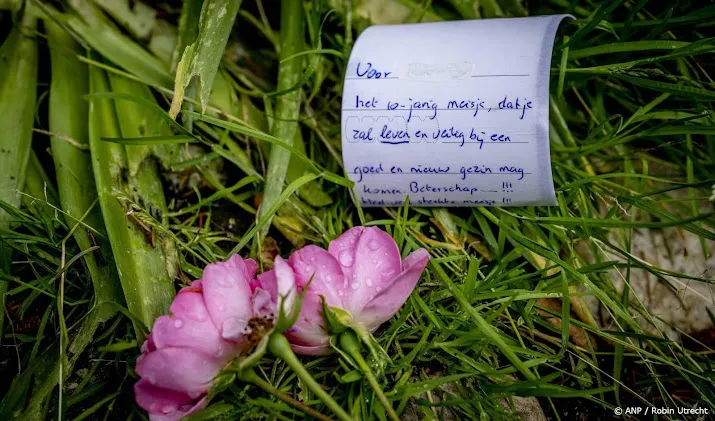 Voor
het 10-jarig meisje, dat je
zal leven en veilig bij een
goed en nieuw gezin mag
komen Beterschap...!!!
meisje !!!
© ANP / Robin Utrecht